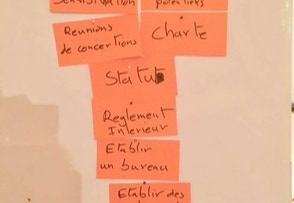 potentiels
Reunions
de concertions
Charte
Statut
Reglement
Interieur
Etablir
un bureau
Etablir des